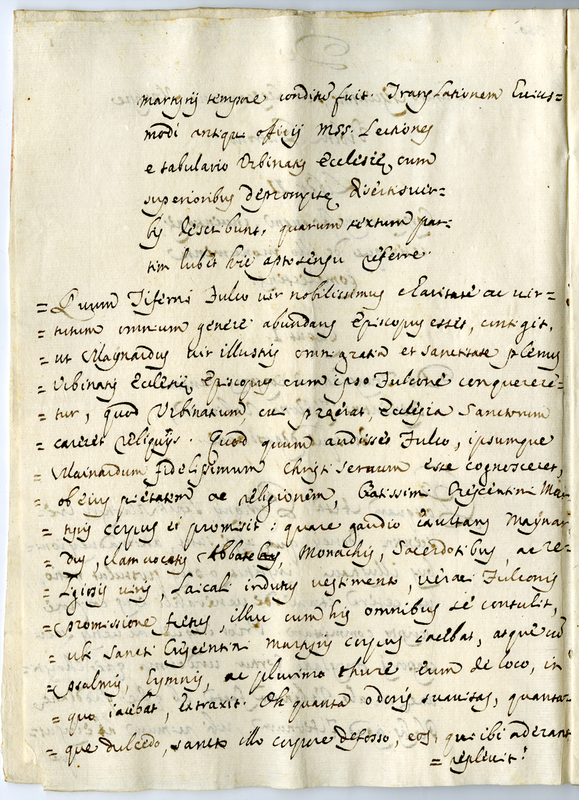 martyrij tempore conditū fuit. Translationem huius=
modi antiqui officij mss. Lectiones
e tabulario Urbinatis Ecclesię cum
superioribus depromptę disertis ver=
bis describunt, quarum textum par=
tim lubet hic apto sensu referre.
= Quum Tiferni Fulco vir nobilissimus claritate ac vir=
= tutum omnium genere abundans Episcopus esset, contigit,
= ut Maynardus vir illustris omni gratia et sanctitate plenus
= Urbinatis Ecclesię Episcopus cum ipso Fulcone conquerere=
= tur, quod Urbinatum, cui pręerat, Ecclesia Sanctorum
= careret reliquijs. Quod quum audisset Fulco, ipsumque
= Mainardum fidelissimum Christi servum esse cognosceret,
= ob eius pietatem ac religionem, Beatissimi Crescentini Mar=
= tyris corpus ei promisit: quare gaudio exultans Maynar=
= dus, clam vocatis Abbate, Monachis, Sacerdotibus, ac re=
= ligiosis viris, Laicali indutus vestimento, verae Fulconis
= promissione fretus, illuc cum his omnibus se contulit,
= ubi Sancti Crescentini Martyris corpus iacebat, atque cū
= psalmis, hymnis, ac plurimo thure eum de loco, in
= quo iacebat, extraxit. Oh quanta odoris suavitas, quanta=
= que dulcedo, sancto illo corpore defosso, eos, qui ibi aderant
= replevit!